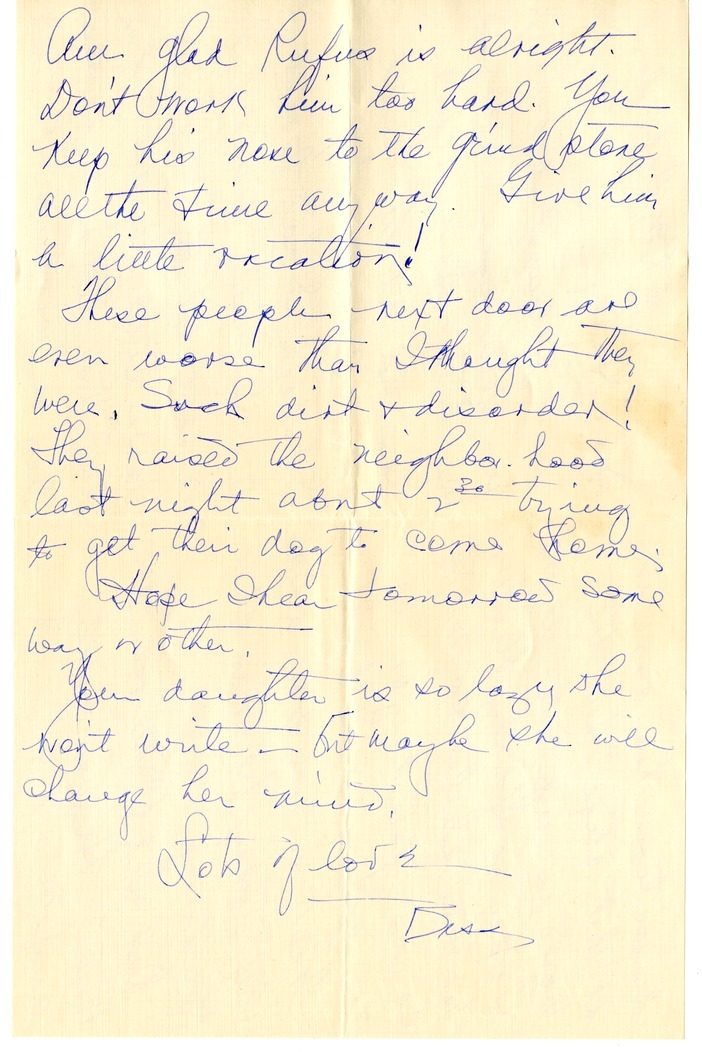 Am glad Rufus is alright.
Don't work him too hard. You
keep his nose to the grind stone
all the time any way. Give him
a little vacation!
These people next door are
even worse than I thought they
were. Such dirt & disorder!
They raised the neighbor.hood
last night about 2 30 trying
to get their dog to come home.
Hope I hear tomorrow some
way or other.
Your daughter is so lazy she
won't write — but maybe she will
change her mind.
Lots of love
Bess